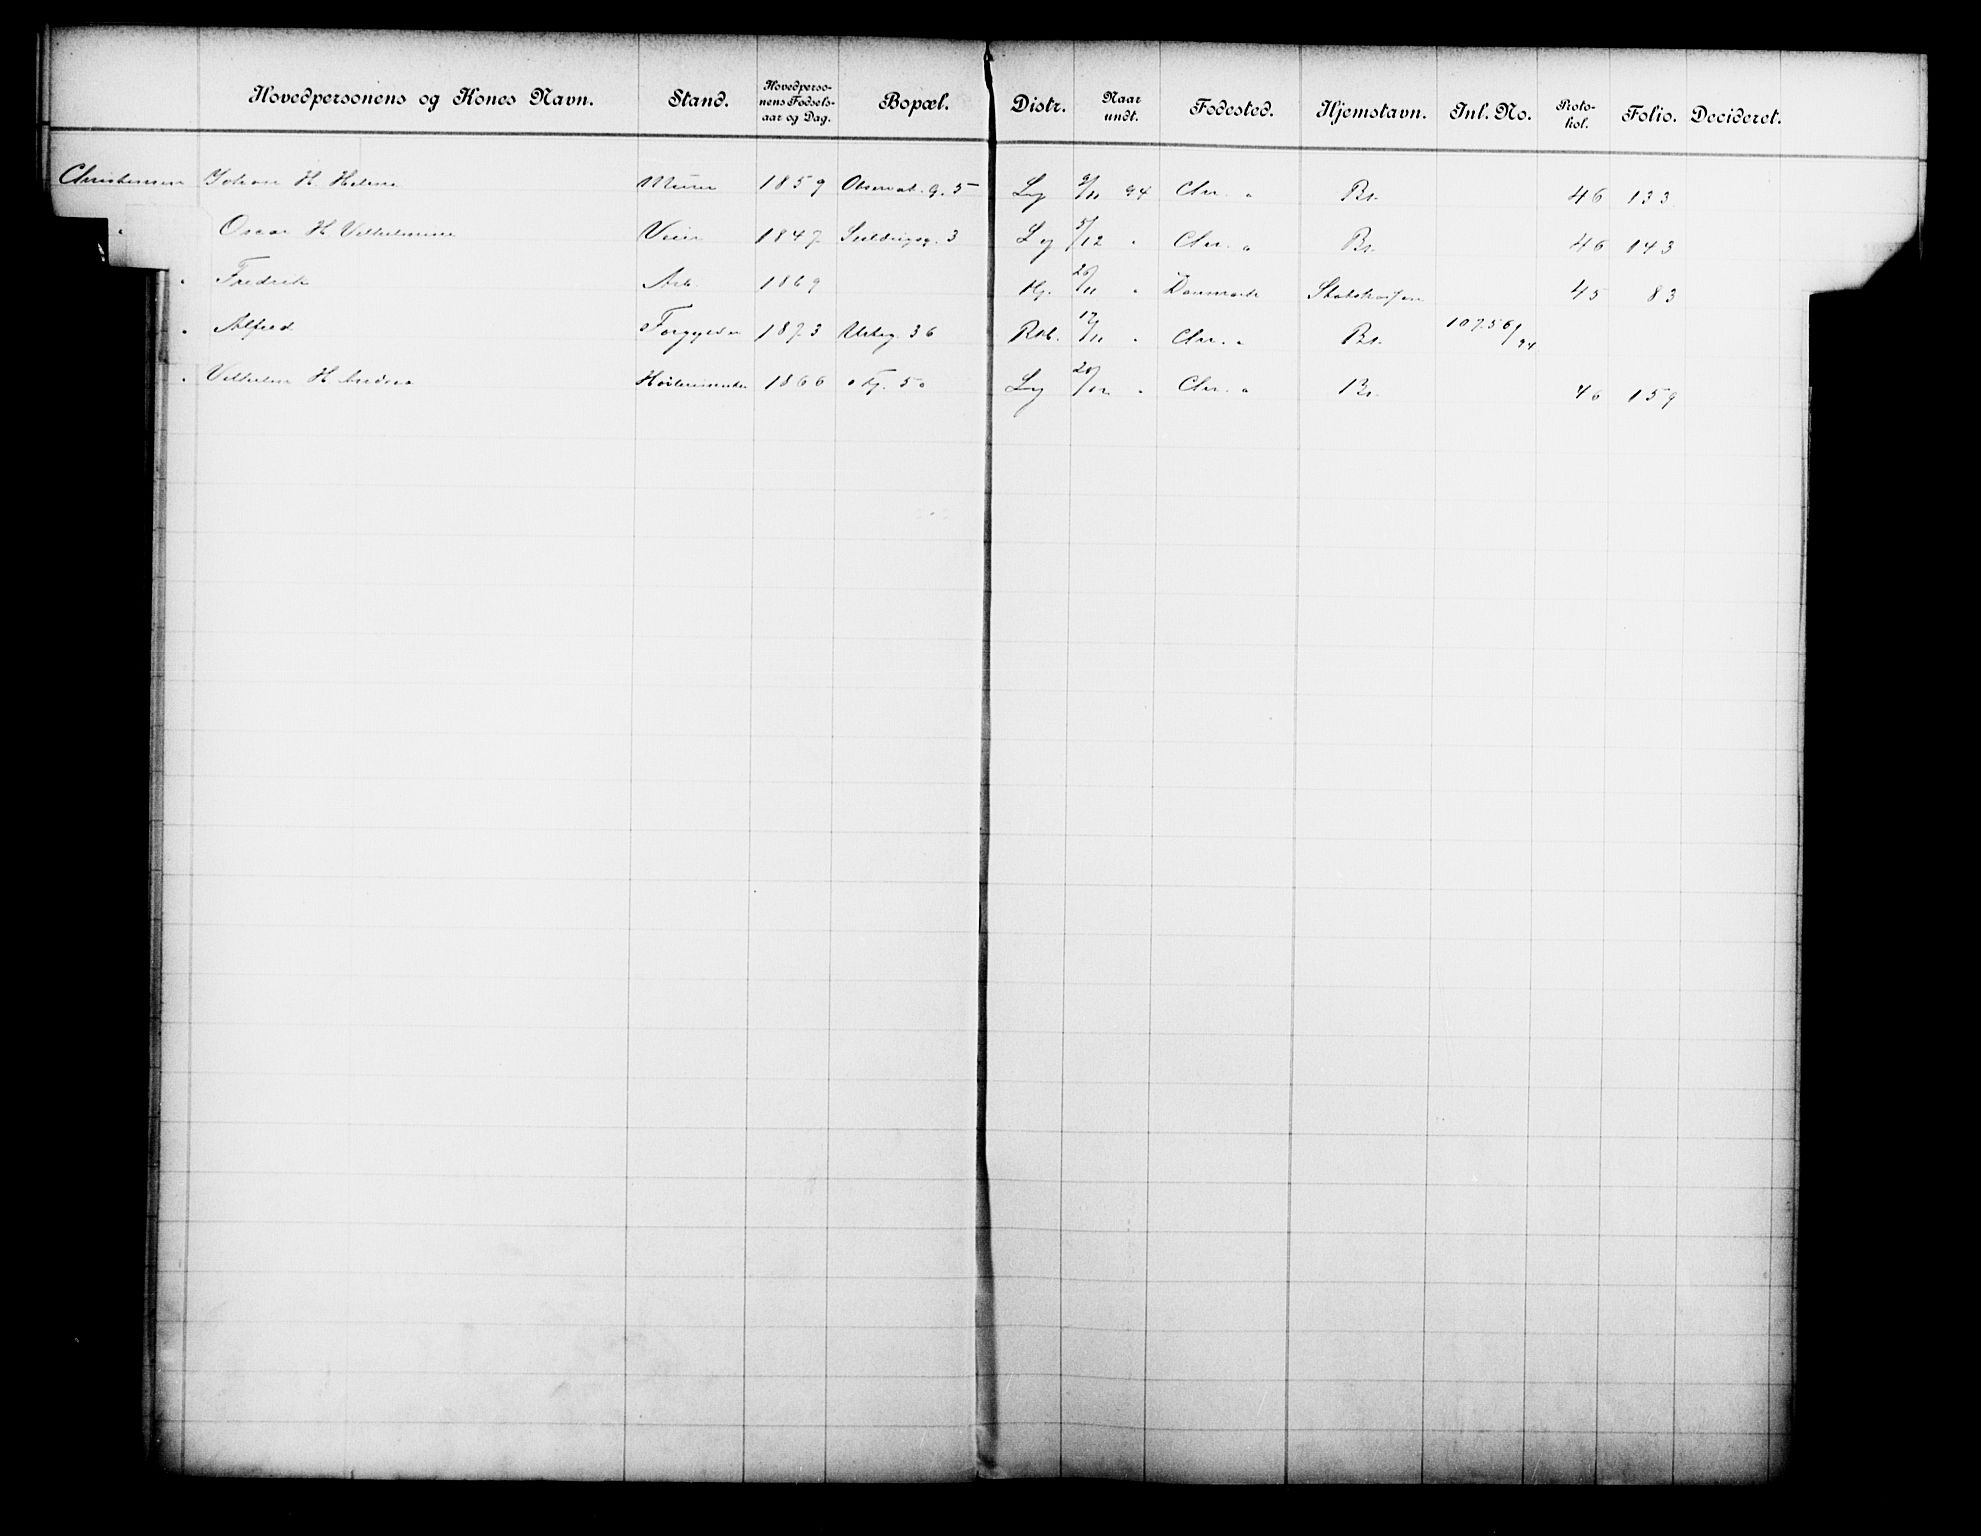 Hovedpersonens og Kones Navn. Stand. Hovedperso-nens Fødsels-aar og Dag. Bopæl. Distr. Naar undt. Fødested. Hjemstavn. Inl. No. Proto-kol. Folio. Decideret.
Christensen Johan H. Helene Murer 1859 Observat. g. 5 Lg 9/11 94 Chr. " Bs. 46 133
" Oscar H Vilhelmine Veier 1847 3 Lg 5/12 " Chr. " Bs. 46 143
" Fredrik Arb. 1869 Hg. 26/11 " Danmark 45 83
" Alfred Forgylder 1873 Urteg. 36 Rsb. 17/11 " Chr. " Bs. 10756/94
" Vilhelm H. Andrea 1866 50 Lg 20/12 " Chr. " Bs. 46 159